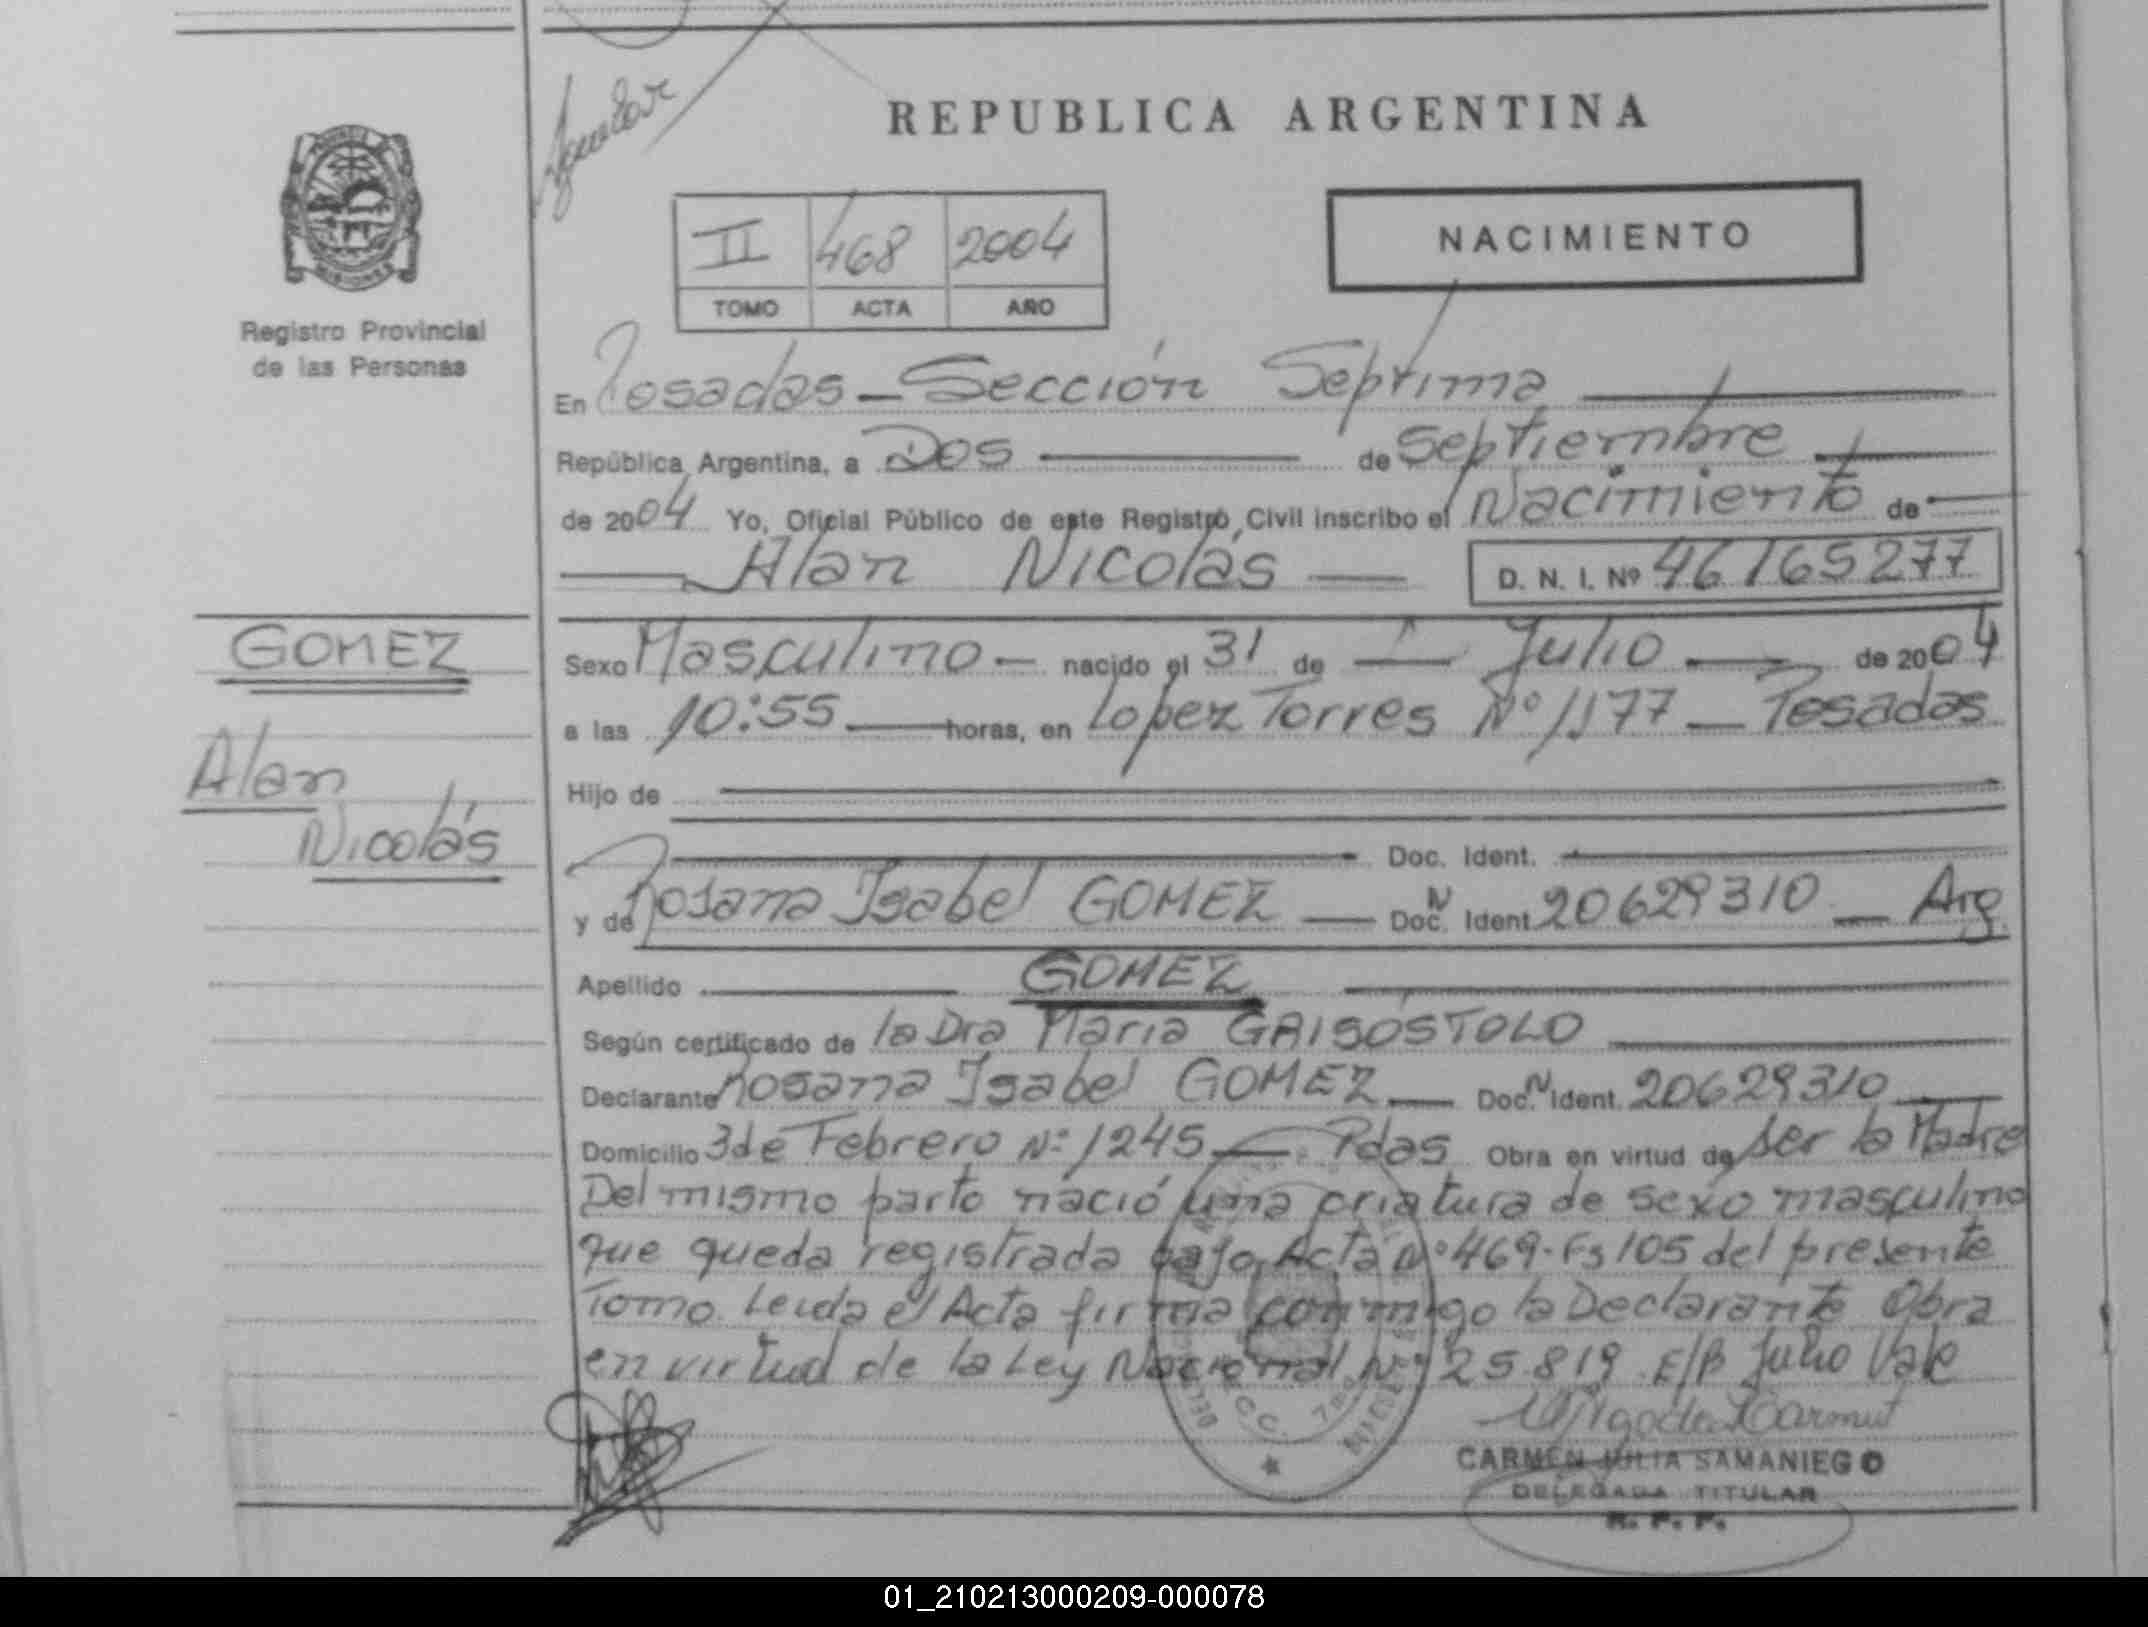 REPUBLICA ARGENTINA
NACIMIENTO
II 468 2004
TOMO ACTA AÑO
Registro Provincial
de las Personas
En Posadas - Sección Séptima
República Argentina, a Dos de Septiembre
de 2004 Yo, Oficial Público de este Registro Civil inscribo el Nacimiento de
Alan Nicolás D. N. I. Nº 46165277
GOMEZ
Alan
Nicolás
Sexo Masculino nacido el 31 de Julio de 2004
a las 10:55 horas, en Lopez Torres Nº 1177 - Posadas
Hijo de
Doc. Ident.
y de Rosana Isabel GOMEZ Doc. N Ident. 20629310 - Arg
Apellido GOMEZ
Según certificado de la Dra Maria GRISÓSTOLO
Declarante Rosana Isabel GOMEZ Doc. N Ident. 20629310
Domicilio 3 de Febrero Nº 1245 - Pdas Obra en virtud de ser la Madre
Del mismo parto nació una criatura de sexo masculino
que queda registrada bajo Acta Nº 469-Fs 105 del presente
Tomo. Leida el Acta firma conmigo la Declarante Obra
en virtud de la Ley Nacional Nº 25.819. E/B Julio Vale
CARMEN JULIA SAMANIEGO
DELEGADA TITULAR
R. P. P.
01_210213000209-000078